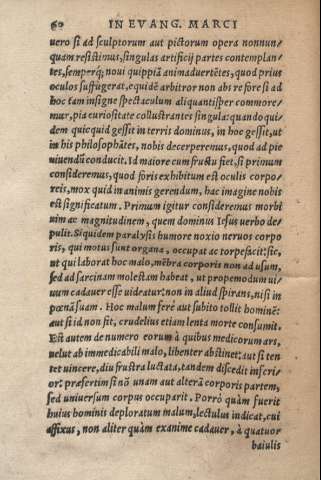 60 IN EVANG. MARCI
uero si ad sculptorum aut pictorum opera nonnun/
quam resistimus, singulas artificij partes contemplan/
tes, semperq́; noui quippiā animaduertētes, quod prius
oculos suffugerat, equidē arbitror non abs re fore si ad
hoc tam insigne spectaculum aliquantisper commore/
mur, pia curiositate collustrantes singula: quando qui/
dem quicquid gessit in terris dominus, in hoc gessit, ut
in his philosophātes, nobis decerperemus, quod ad pie
uiuendū conducit. Id maiore cum fructu fiet, si primum
consideremus, quod foris exhibitum est oculis corpo/
reis, mox quid in animis gerendum, hac imagine nobis
est significatum. Primum igitur consideremus morbi
uim ac magnitudinem, quem dominus Iesus uerbo de/
pulit. Siquidem paralysis humore noxio neruos corpo
ris, qui motus sunt organa, occupat ac torpefacit: sic,
ut qui laborat hoc malo, mēbra corporis non ad usum,
sed ad sarcinam molestam habeat, ut propemodum ui
uum cadauer esse uideatur: non in aliud spirans, nisi in
pœnā suam. Hoc malum ferè aut subito tollit hominē:
aut si id non fit, crudelius etiam lenta morte consumit.
Est autem de numero eorum à quibus medicorum ars,
uelut ab immedicabili malo, libenter abstinet: aut si ten
tet uincere, diu frustra luctata, tandem discedit inferi/
or: præsertim si nō unam aut alterā corporis partem,
sed uniuersum corpus occuparit. Porrò quàm fuerit
huius hominis deploratum malum, lectulus indicat, cui
affixus, non aliter quàm exanime cadauer, à quatuor
baiulis